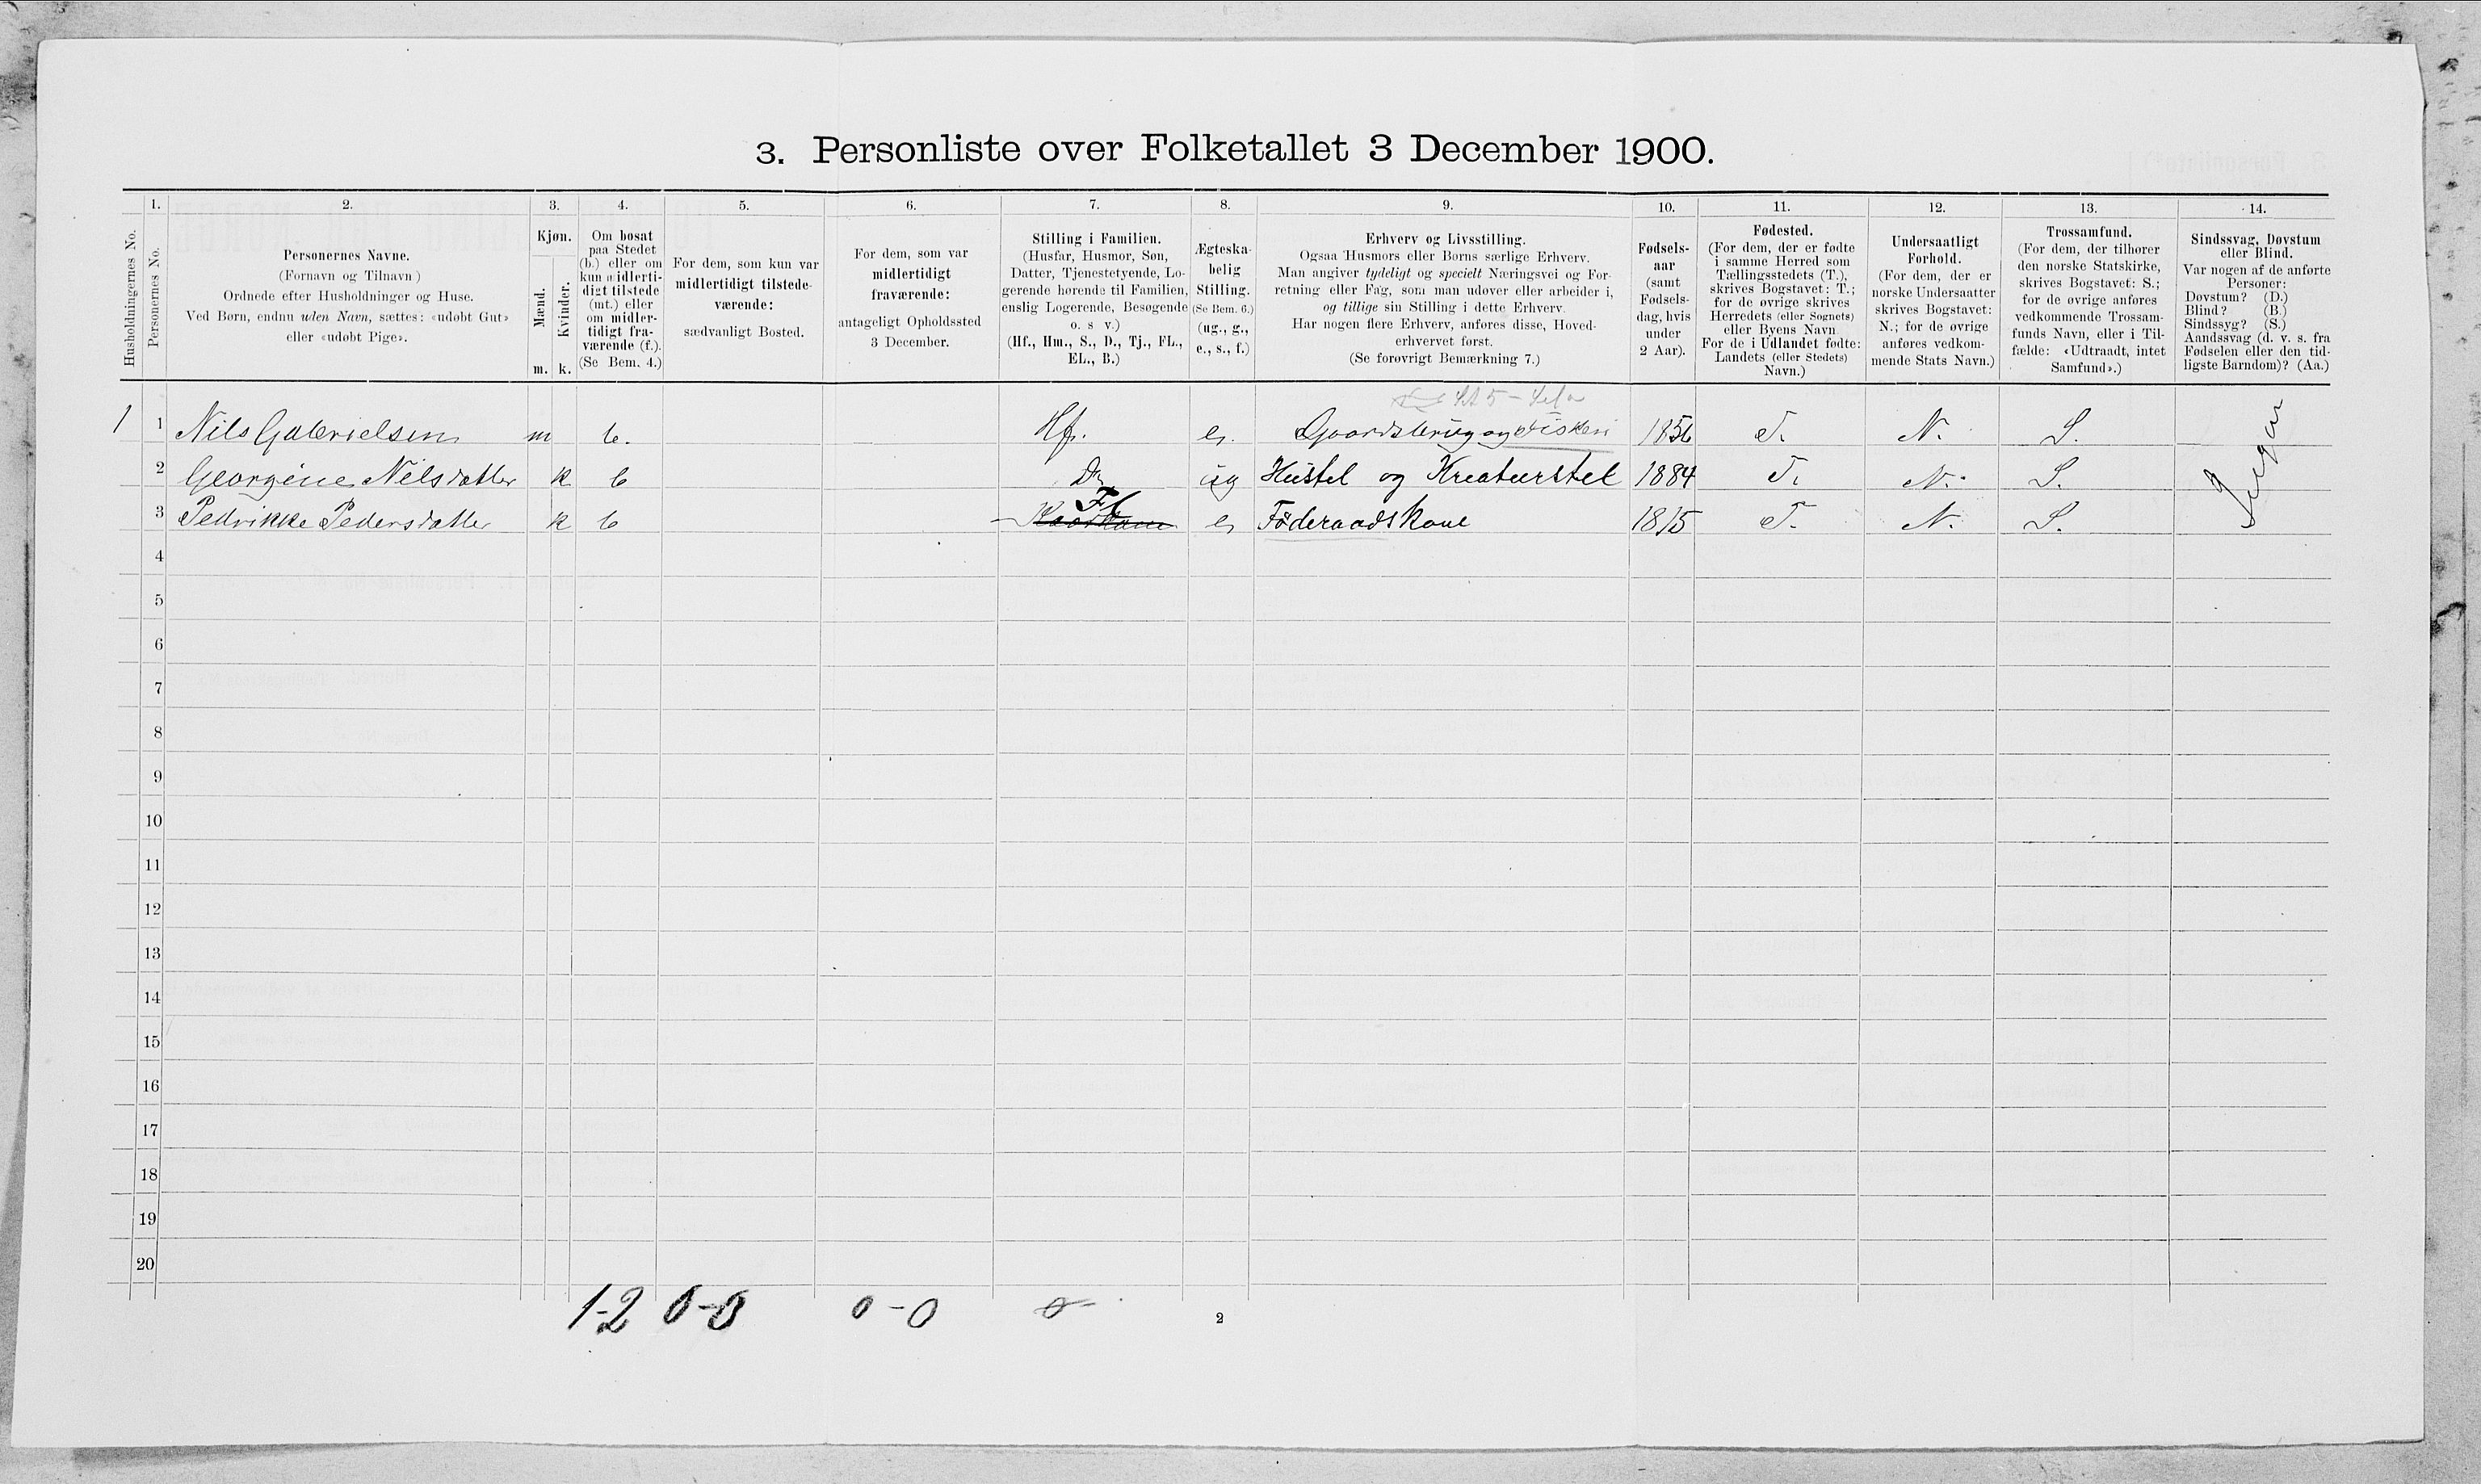 3. Personliste over Folketallet 3 December 1900.
Husholdningernes No.
1. Personernes No.
2. Personernes Navne.
(Fornavn og Tilnavn)
Ordnede efter Husholdninger og Huse.
Ved Børn, endnu uden Navn, sættes: «udøbt Gut»
eller «udøbt Pige».
3. Kjøn.
Mænd.
Kvinder.
m. k.
4. Om bosat
paa Stedet
(b.) eller om
kun midlerti-
digt tilstede
(mt.) eller
om midler-
tidigt fra-
værende (f.).
(Se Bem. 4.)
5. For dem, som kun var
midlertidigt tilstede-
værende:
sædvanligt Bosted.
6. For dem, som var
midlertidigt
fraværende:
antageligt Opholdssted
3 December.
7. Stilling i Familien.
(Husfar, Husmor, Søn,
Datter, Tjenestetyende, Lo-
gerende hørende til Familien,
enslig Logerende, Besøgende
o. s v.)
(Hf., Hm., S., D., Tj., FL.,
EL., B.)
8. Ægteska-
belig
Stilling.
(Se Bem. 6.)
(ug., g.,
e., s., f.)
9. Erhverv og Livsstilling.
Ogsaa Husmors eller Børns særlige Erhverv.
Man angiver tydeligt og specielt Næringsvei og For-
retning eller Fag, som man udøver eller arbeider i,
og tillige sin Stilling i dette Erhverv.
Har nogen flere Erhverv, anføres disse, Hoved-
erhvervet først.
(Se forøvrigt Bemærkning 7.)
10. Fødsels-
aar
(samt
Fødsels-
dag, hvis
under
2 Aar).
11. Fødested.
(For dem, der er fødte
i samme Herred som
Tællingsstedets (T.),
skrives Bogstavet: T.;
for de øvrige skrives
Herredets (eller Sognets)
eller Byens Navn
For de i Udlandet fødte:
Landets (eller Stedets)
Navn.)
12. Undersaatligt
Forhold.
(For dem, der er
norske Undersaatter
skrives Bogstavet:
N.; for de øvrige
anføres vedkom-
mende Stats Navn.)
13. Trossamfund.
(For dem, der tilhører
den norske Statskirke,
skrives Bogstavet: S.;
for de øvrige anføres
vedkommende Trossam-
funds Navn, eller i Til-
fælde: «Udtraadt, intet
Samfund».)
14. Sindssvag, Døvstum
eller Blind.
Var nogen af de anførte
Personer:
Døvstum? (D.)
Blind? (B.)
Sindssyg? (S.)
Aandssvag (d. v. s. fra
Fødselen eller den tid-
ligste Barndom)? (Aa.)
1 1 Nils Gabrielsen m b. Hf. e. Gaardsbrug og Fiskeri 1856 T. N. S.
2 Georgine Nilsdatter k b D. ug Hustel og Kreaturstel 1884 T. N. S.
3 Pedrikke Pedersdatter k b FL e. Føderaadskone 1815 T. N. S.
Ingen
4
5
6
7
8
9
10
11
12
13
14
15
16
17
18
19
20
1-2 0-0 0-0 0-
2